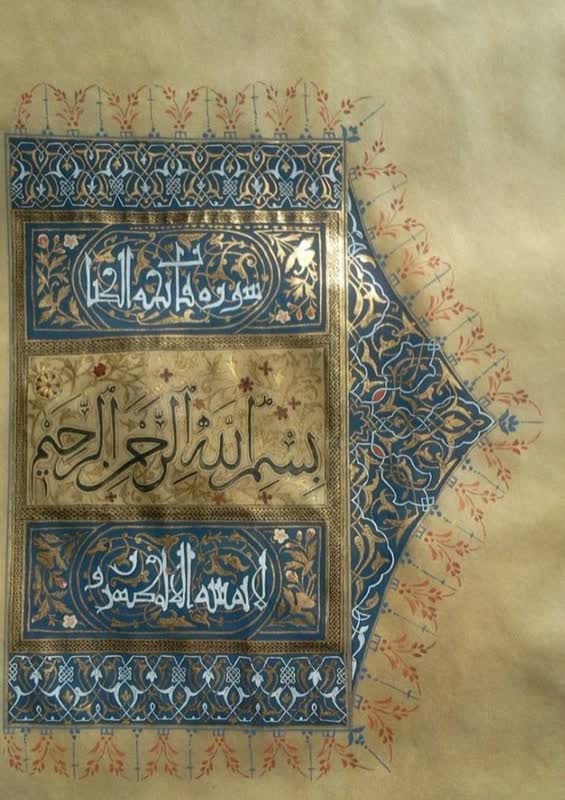 سورة فاتحة الكتاب
بسم الله الرحمن الرحيم
لا يمسه إلا المطهرون